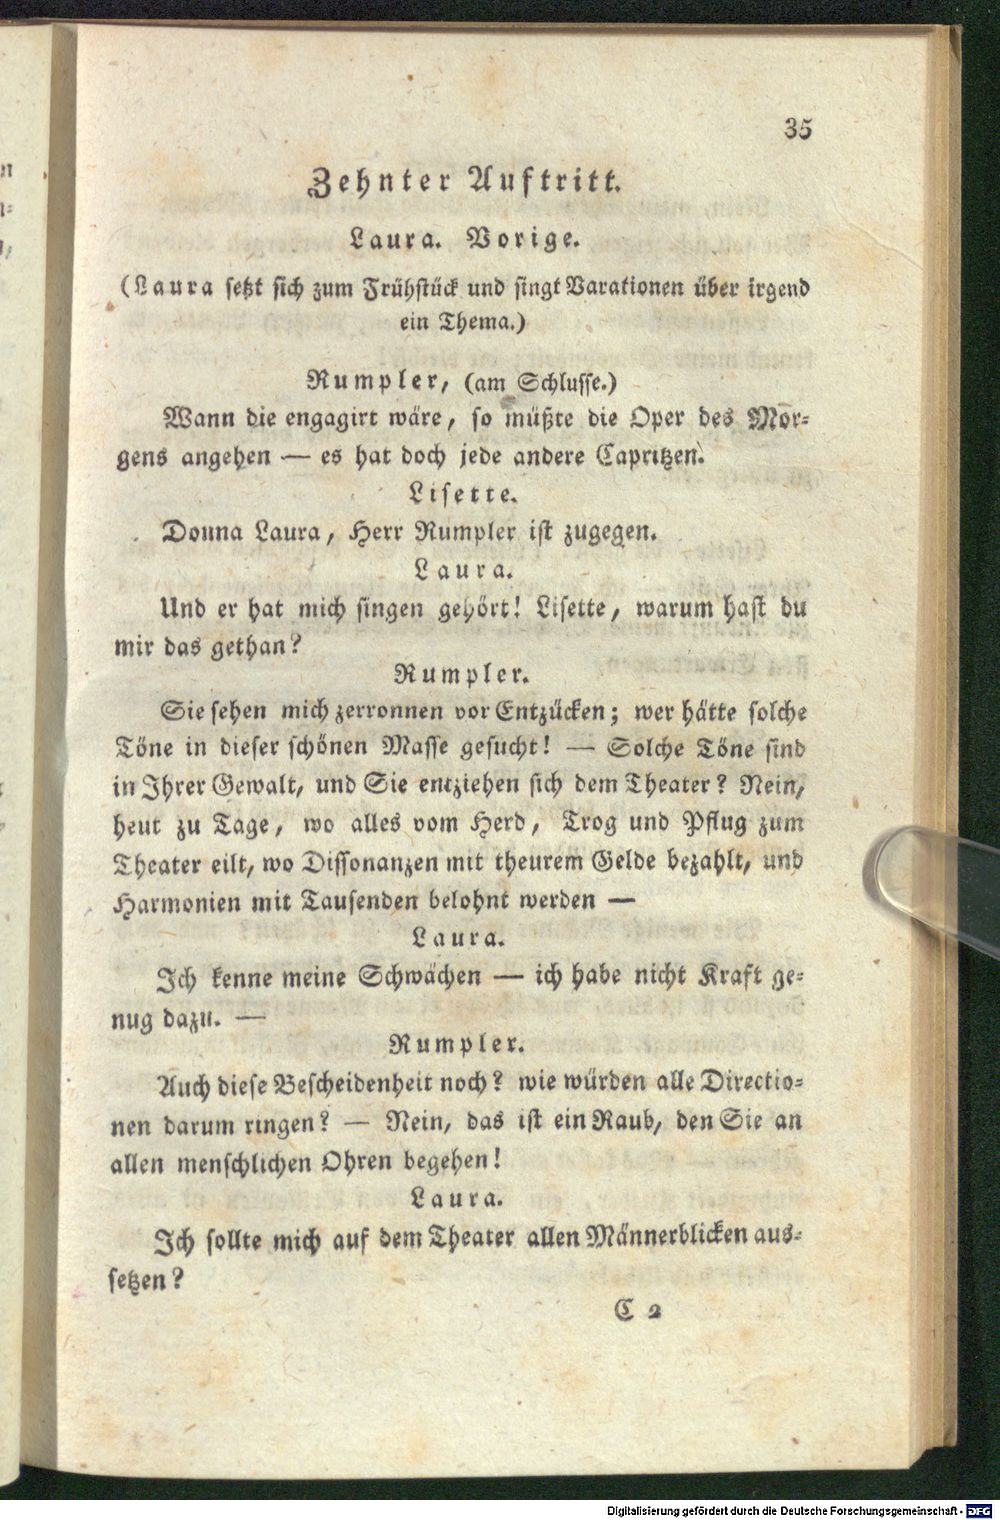 35
Zehnter Auftritt.
Laura. Vorige.
(Laura setzt sich zum Frühstück und singt Varationen über irgend
ein Thema.)
Rumpler, (am Schlusse.)
Wann die engagirt wäre, so müßte die Oper des Mor-
gens angehen — es hat doch jede andere Capritzen.
Lisette.
Donna Laura, Herr Rumpler ist zugegen.
Laura.
Und er hat mich singen gehört! Lisette, warum hast du
mir das gethan?
Rumpler.
Sie sehen mich zerronnen vor Entzücken; wer hätte solche
Töne in dieser schönen Masse gesucht! — Solche Töne sind
in Ihrer Gewalt, und Sie entziehen sich dem Theater? Nein,
heut zu Tage, wo alles vom Herd, Trog und Pflug zum
Theater eilt, wo Dissonanzen mit theurem Gelde bezahlt, und
Harmonien mit Tausenden belohnt werden —
Laura.
Ich kenne meine Schwächen — ich habe nicht Kraft ge-
nug dazu. —
Rumpler.
Auch diese Bescheidenheit noch? wie würden alle Directio-
nen darum ringen? — Nein, das ist ein Raub, den Sie an
allen menschlichen Ohren begehen!
Laura.
Ich sollte mich auf dem Theater allen Männerblicken aus-
setzen?
C 2
Digitalisierung gefördert durch die Deutsche Forschungsgemeinschaft - DFG